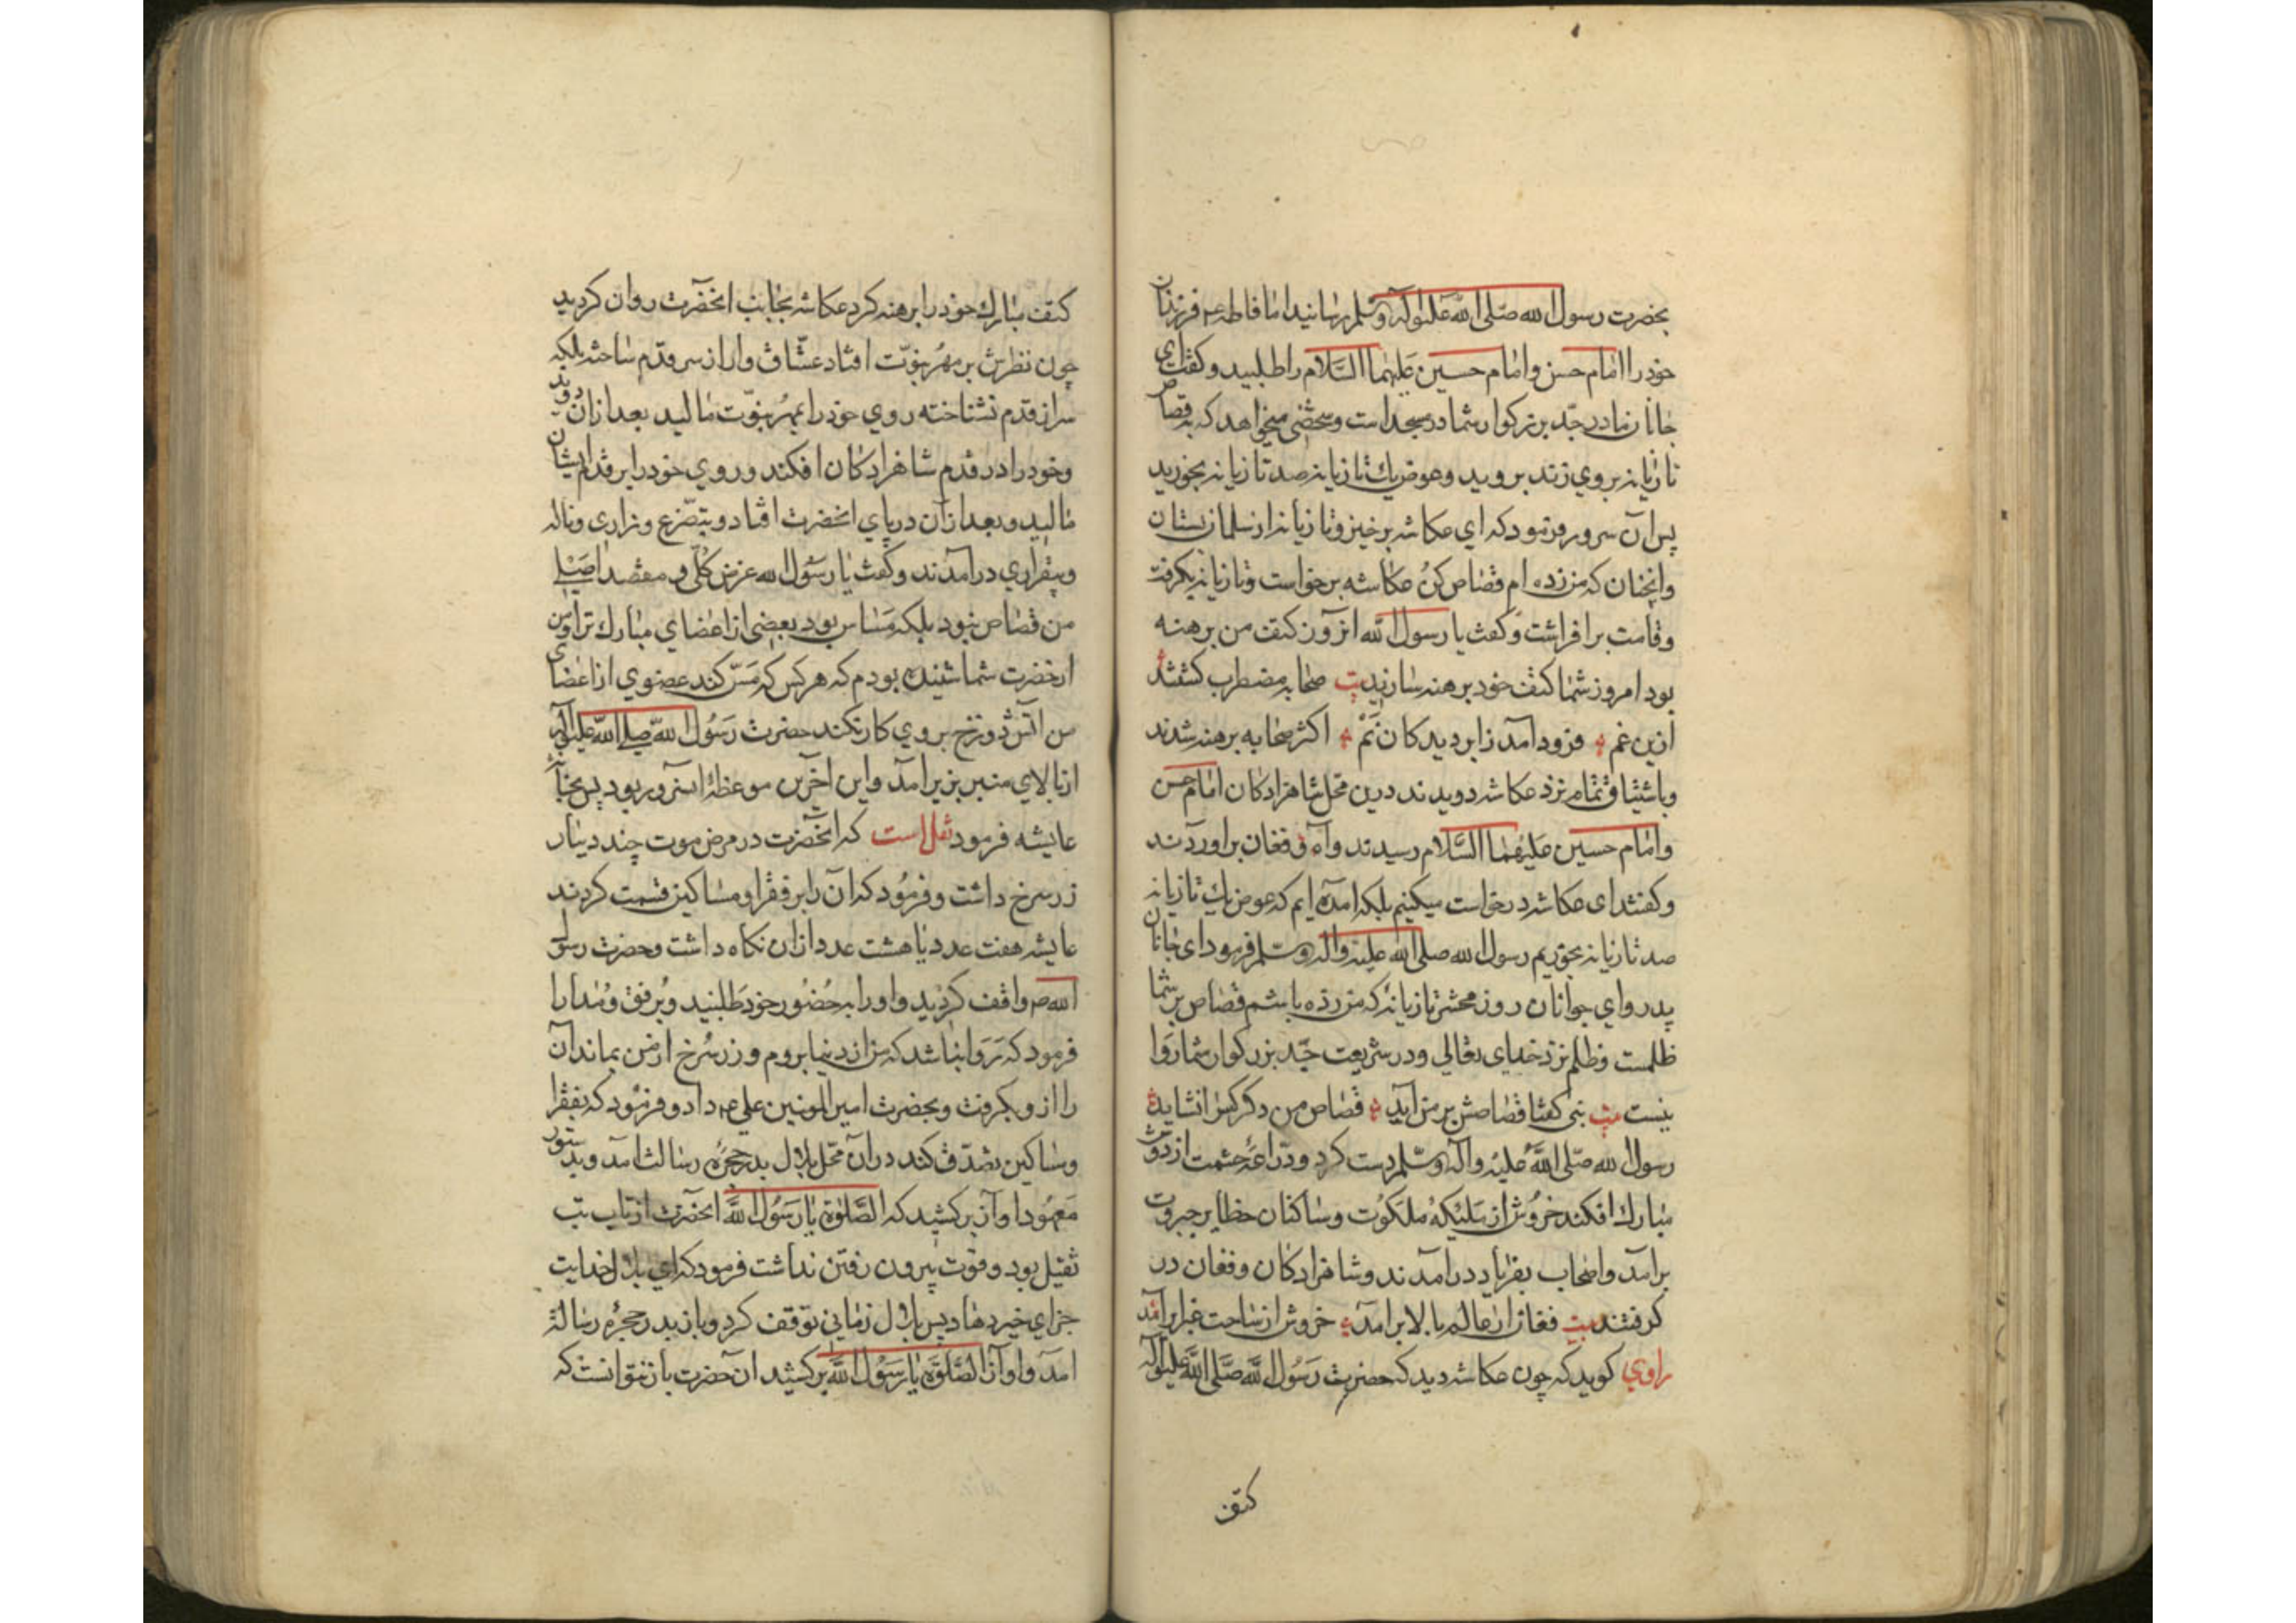 بحضرت رسول الله صلی الله علیه وآله وسلم رسانید اما فاطمه ع م فرزندان
خود را امام حسن وامام حسین علیهما السلام را طلبید و کفت ای
جانان مادر جد بزرکوار شما در مسجد است وشخصی میخواهد که بقصاص
تازیانه بروی زند بروید وعوض یك تازیانه صد تازیانه بخورید
پس آن سرور فرمود که ای عکاشه برخیز وتازیانه از سلمان بستان
وانچنان که من زده ام قصاص کن عکاشه برخواست وتازیانه بکرفت
وقامت بر افراشت وکفت یا رسول الله انروز کتف من برهنه
بود امروز شما کتف خود برهنه سازید بیت صحابه مضطرب کشتند
ازین غم فرود آمد ز ابر دیدکان نم اکثر صحابه برهنه شدند
وباشتیاق تمام نزد عکاشه دویدند درین محل شاهزادکان امام حسن
وامام حسین علیهما السلام رسیدند واه و فغان براوردند
وکفتند ای عکاشه درخواست میکنیم بلکه امده ایم که عوض یك تازیانه
صد تازیانه بخوریم رسول الله صلی الله علیه واله وسلم فرمود ای جانان
پدر وای جوانان روز محشر تازیانه که من زده باشم قصاص بر شما
ظلمست وظلم نزد خدای تعالی ودر شریعت جد بزرکوار شما روا
نیست بیت نبی کفتا قصاصش بر من آید قصاص من دکر کس را نشاید
رسول الله صلی الله علیه وآله وسلم دست کرد ودراعه حشمت از دوش
مبارك افکند خروش از ملیکه ملکوت وساکنان حظایر جبروت
برامد واصحاب بفریاد درامدند وشاهزادکان وفغان در
کرفتند بیت فغان از عالم بالا برامد خروش از ساحت غبرا برامد
راوی کوید که چون عکاشه دید که حضرت رسول الله صلی الله علیه وآله
کتف
کتف مبارك خود را برهنه کرد عکاشه بجانب انحضرت روان کردید
چون نظرش بر مهر نبوت افتاد عشاق وار از سر قدم ساخته بلکه
سر از قدم نشناخته روی خود را بمهر نبوت مالید بعد ازان دوید
وخود را در قدم شاهزادکان افکند وروی خود را بر قدم ایشان
مالید وبعد ازآن در پای انحضرت افتاد وبتضرع وزاری وناله
وبیقراری درامدند وکفت یا رسول الله عرض کلی و مقصد اصلی
من قصاص نبود بلکه مساس بود ببعضی از اعضای مبارك تر او من
ازحضرت شما شنیده بودم که هر کس که مس کند عضوی از اعضای
من اتش دوزخ بروی کار نکند حضرت رسول الله صلی الله علیه وآله
از بالای منبر بزیر امد واین اخرین موعظه انسرور بود پس بخانه
عایشه فرمود نقل است که انحضرت در مرض موت چند دینار
زر سرخ داشت وفرمود که ان را بر فقرا ومساکین قسمت کردند
عایشه هفت عدد یا هشت عدد ازان نکاه داشت وحضرت رسول
الله ص واقف کردید واو را به حضور خود طلبید وبرفق ومدارا
فرمود که روا نباشد که من از دنیا بروم وزر سرخ از من بماند آن
را ازو بکرفت وبحضرت امیر المومنین علی ع م داد وفرمود که بفقرا
ومساکین تصدق کند دران محل بلال بدر حجره رسالت امد وبدستور
معهود اواز برکشید که الصلوة یا رسول الله انحضرت از تاب تب
ثقیل بود وقوت بیرون رفتن نداشت فرمود که ای بلال خدایت
جزای خیر دهاد پس بلال زمانی توقف کرد وباز بدر حجره رسالة
امد واواز الصلوة یا رسول الله برکشید ان حضرت باز نتوانست که